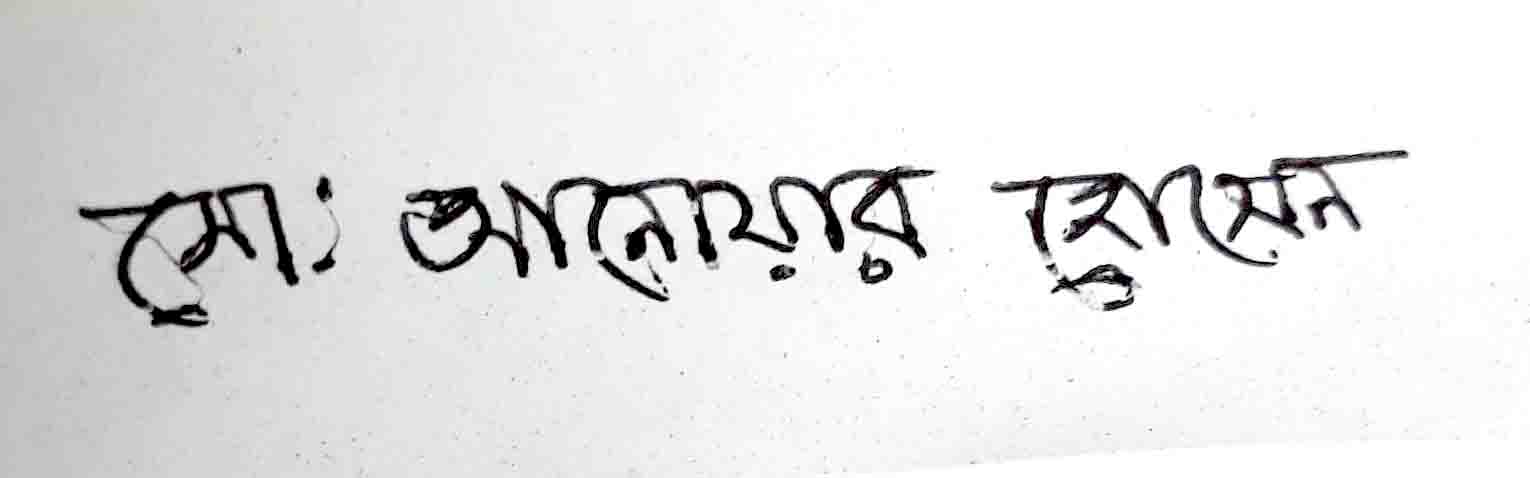 মো: আনোয়ার হোসেন